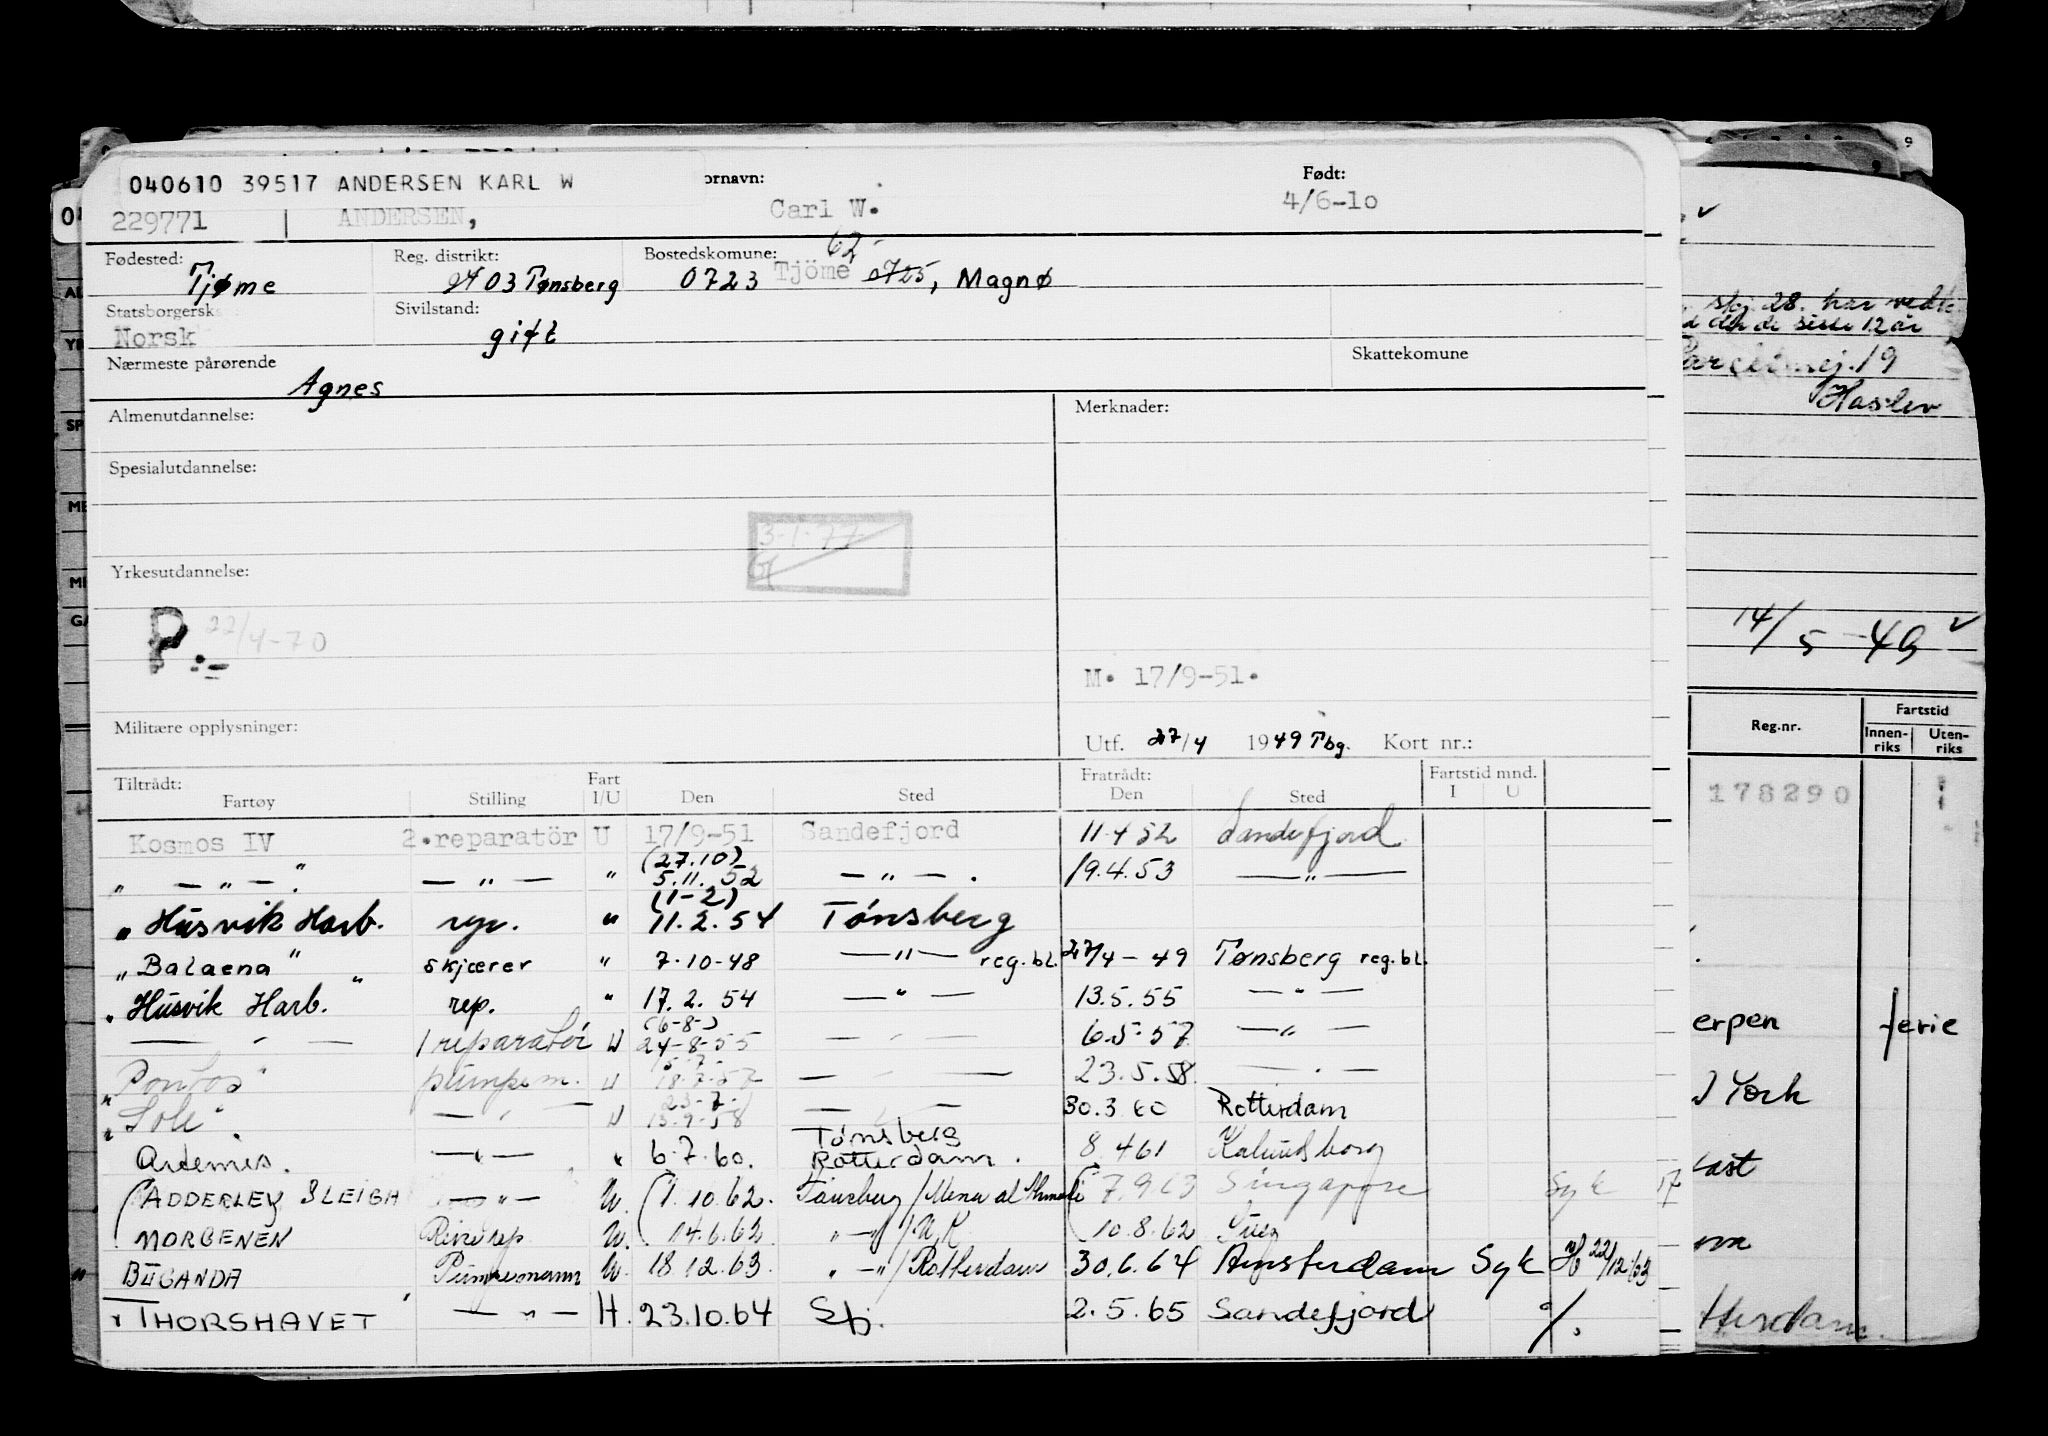 040610 39517 ANDERSEN KARL W ornavn: Født:
229771 ANDERSEN, Carl W. 4/6-10
Fødested: Reg. distrikt: Bostedskomune: 62
Tjøme 03 Tønsberg 0723 Tjöme 0725, Magnø
Statsborgersk Sivilstand:
Norsk gift
Nærmeste pårørende Skattekomune
Agnes
Almenutdannelse: Merknader:
Spesialutdannelse:
3-1-77
Yrkesutdannelse:
P.- 22/4-70
M. 17/9-51.
Militære opplysninger:
Utf. 27/4 1949 Tbg. Kort nr.:
Tiltrådt: Fart Fratrådt: Fartstid mnd.
Fartøy Stilling I/U Den Sted Den Sted I U
Kosmos IV 2.reparatör U 17/9-51 Sandefjord 11.4 52 Sandefjord
(27.10)
" — " — " — " — " 5.11.52 — " — . 19.4.53 — " —
(11-2)
" Husvik Harb. rep. " 11.2.54 Tønsberg
" Balaena " skjærer " 7-10-48 — " — reg.bl. 27/4-49 Tønsberg reg.bl.
" Husvik Harb. " rep. " 17.2.54 — " — 13.5.55 — " —
(6-8-)
— " — 1 reparatör U 24-8-55 — " — 6.5.57 — " —
" Pontos " pumpem. U 18.7.57 — " — 23.5.58 — " —
23-7-
" Sole " — " — U 13.9.58 — " — 30.3.60 Rotterdam
Tønsberg
Artemis. — " — " 6.7.60. Rotterdam. 8.4 61 Kalundborg
(ADDERLEY — " — U. (1.10.62. Tønsberg / Mena al Ahmadi (7.9.63 Singapore Syk 17
NORGENEN rep U. 14.6.62 " — " / U.K 10.8.62 Suez
" BUGANDA Pumpemann U. 18.12.63. " — " / Rotterdam 30.6.64 Amsterdam Syk 22/12/63
" THORSHAVET — " — H. 23.10.64 Sfj. 2.5.65 Sandefjord %.
9
skj 28. har
d de siste 12 år
19
Haslev
14/5-49
Reg.nr. Fartstid
Innen-riks Uten-riks
178290
erpen ferie
York
ast
tterdam